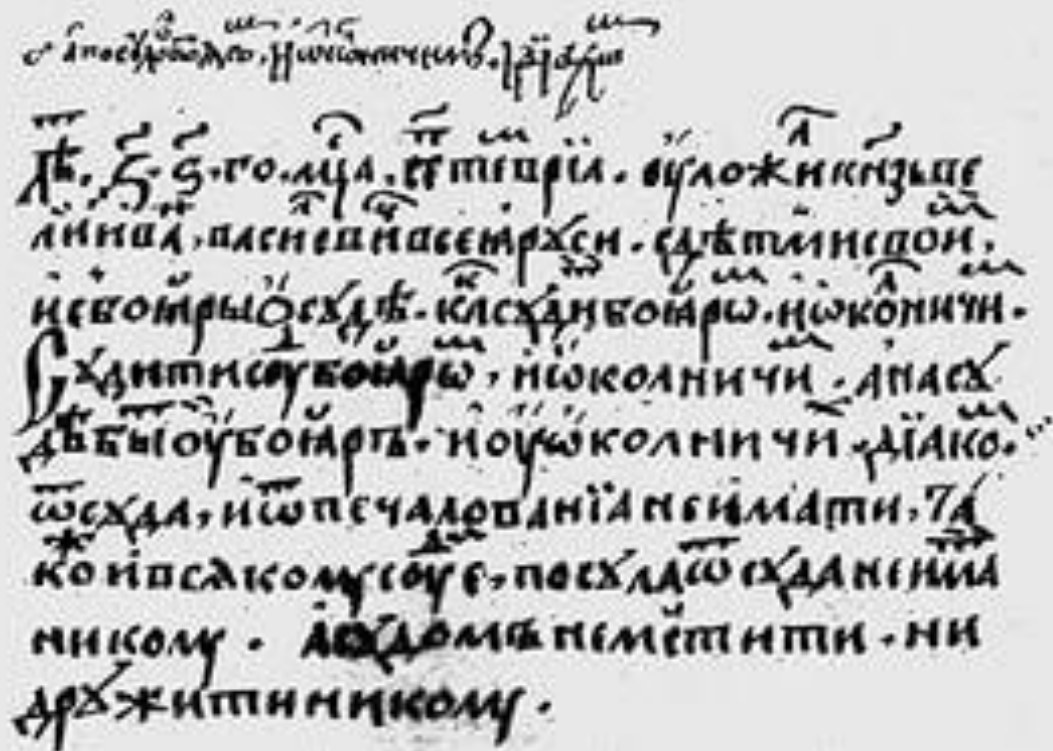 а посуло боѧро, и ѡколничим, и дїако
Лѣ ҂з҃ ѕ҃ го мца септевріа оуложи кнзь ве
ликїи ива васиеви всеа рꙋси с дѣтми свои,
и с боѧры ѡ сꙋдѣ, ка сꙋди боѧрѡ, и ѡколничи.
Сꙋдити сꙋ боѧрѡ, и ѡколничи. а на сꙋ
дѣ бы оу боѧръ, и оу ѡколничи дїако.
ѿ сꙋда, и ѿ печалованїа не имати, та
ко и всякому сꙋе, посꙋла ѿ сꙋда не има
никому. а сꙋдомъ не мстити, ни
дрꙋжити никому.